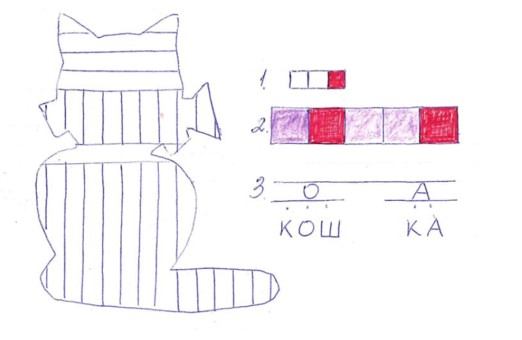 1.
2.
3. О А
КОШ КА